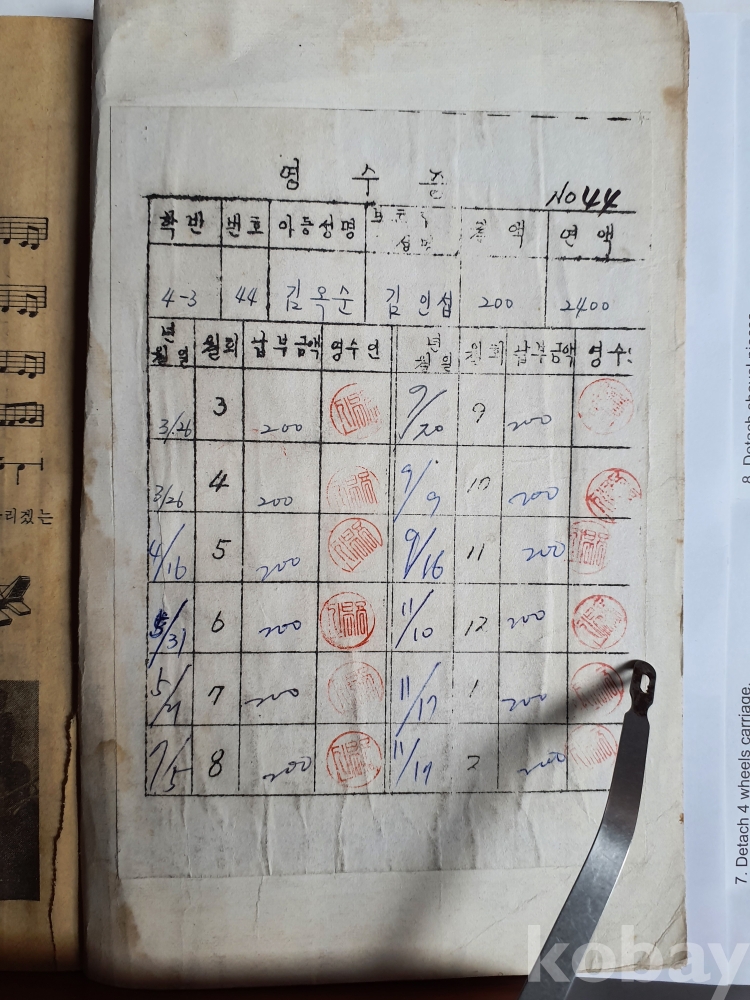 영 수 증
NO 44
학반 번호 아동성명 액 연 액
4-3 44 김옥순 김인섭 200 2400
년월일 월회 납부금액 영수인 년월일 월회 납부금액 영수
3/26 3 200 9/20 9 200
3/26 4 200 9/9 10 200
4/16 5 200 9/16 11 200
5/31 6 200 11/10 12 200
5/ 7 200 11/17 1 200
7/5 8 200 11/17 2 200
리겠는
7. Detach 4 wheels carriage.
kobay